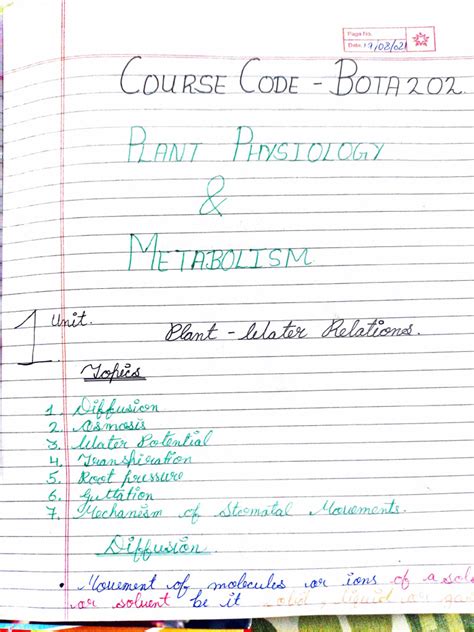 Page No.
Date 19/08/021
COURSE CODE - BOTA202.
PLANT PHYSIOLOGY
&
METABOLISM
1 Unit.
Plant - Water Relations.
Topics
1. Diffusion
2. Osmosis
3. Water Potential
4. Transpiration
5. Root pressure
6. Guttation
7. Mechanism of Stomatal Movements.
Diffusion
• Movement of molecules or ions of a
or solvent be it liquid or